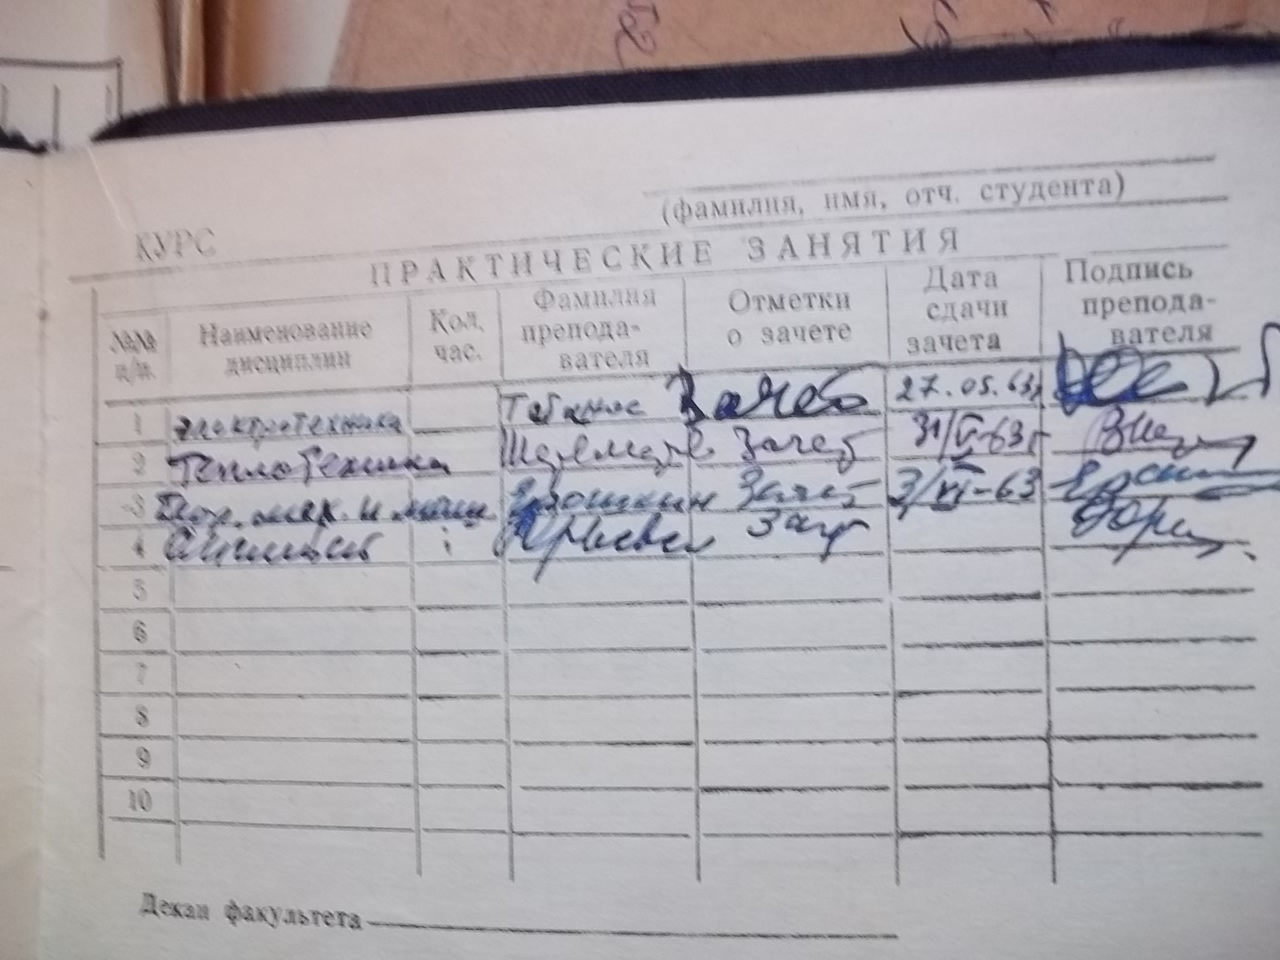 КУРС
(фамилия, имя, отч. студента)
ПРАКТИЧЕСКИЕ ЗАНЯТИЯ
№№ п/п. Наименование дисциплин Кол. час. Фамилия препода- вателя Отметки о зачете Дата сдачи зачета Подпись препода- вателя
1 Электротехника Зачет 27.05.63
2 Теплотехника Зачет 31/V-63г
3 и Ерошкин Зачет 3/VI-63
4 Зач
5
6
7
8
9
10
Декан факультета